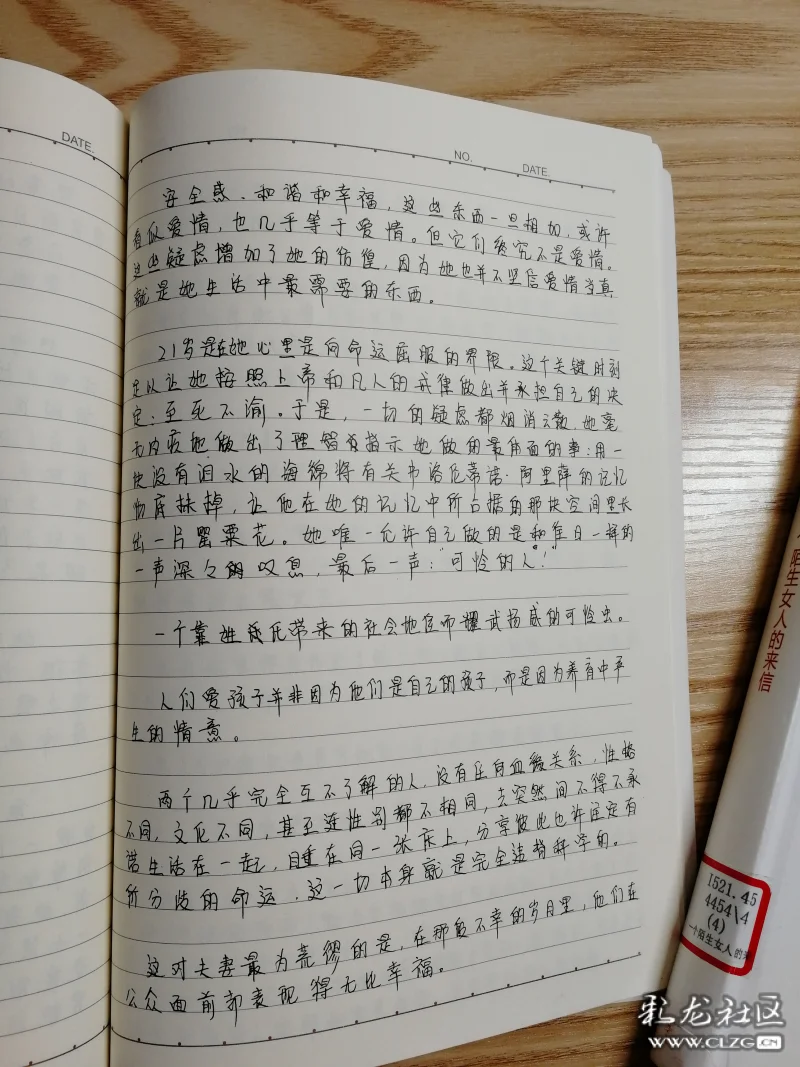 DATE.
NO.
DATE.
安全感、和谐和幸福，这些东西一旦相加，或许
看似爱情，也几乎等于爱情。但它们终究不是爱情。
这些疑虑增加了她的彷徨，因为她也并不坚信爱情当真
就是她生活中最需要的东西。
21岁是在她心里是向命运屈服的界限。这个关键时刻
足以让她按照上帝和凡人的戒律做出并承担自己的决
定：至死不渝。于是，一切的疑虑都烟消云散，她毫
无内疚地做出了理智指示她做的最角面的事：用一
块没有泪水的海绵将有关弗洛伦蒂诺·阿里萨的记忆
彻底抹掉，让他在她的记忆中所占据的那块空间里长
出一片罂粟花。她唯一允许自己做的是和往日一样的
一声深深的叹息，最后一声：“可怜的人！”
一个靠姓氏带来的社会地位而耀武扬威的可怜虫。
人们爱孩子并非因为他们是自己的孩子，而是因为养育中产
生的情意。
两个几乎完全互不了解的人，没有任何血缘关系，性格
不同，文化不同，甚至连性别都不相同，去突然间不得不承
诺生活在一起，睡在同一张床上，分享彼此也许注定有
所分歧的命运，这一切本身就是完全违背科学的。
这对夫妻最为荒谬的是，在那段不幸的岁月里，他们在
公众面前却表现得无比幸福。
陌生女人的来信
I521.45
4454\4
(4)
一个陌生女人的来
彩龙社区
WWW.CLZG.CN